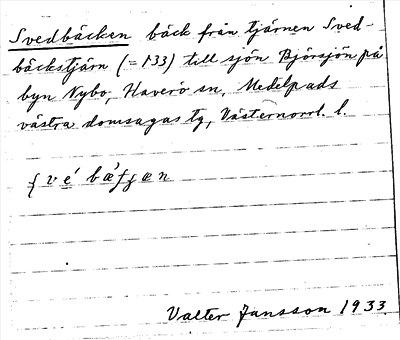 Svedbäcken bäck från tjärnen Sved-
bäckstjärn (= 133) till sjön Björsjön på
byn Nybo, Haverö sn, Medelpads
västra domsagas tg, Västernorrl. l.
Valter Jansson 1933